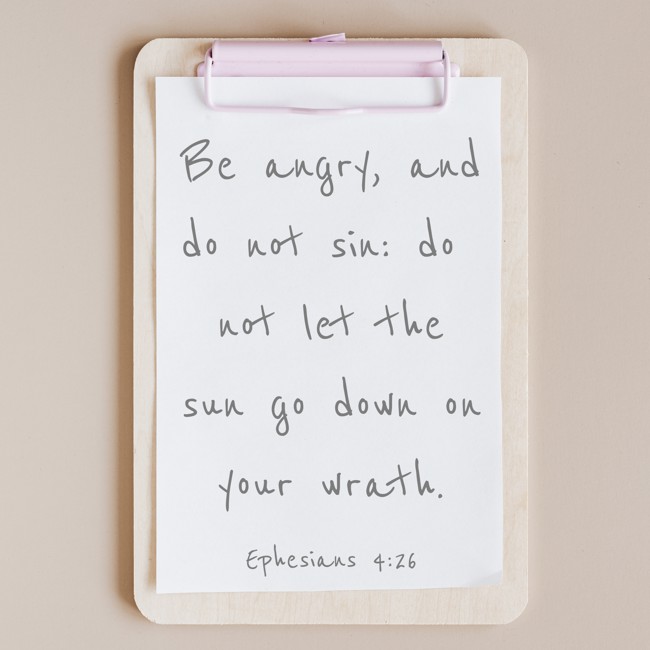 Be angry, and
do not sin: do
not let the
sun go down on
your wrath.
Ephesians 4:26